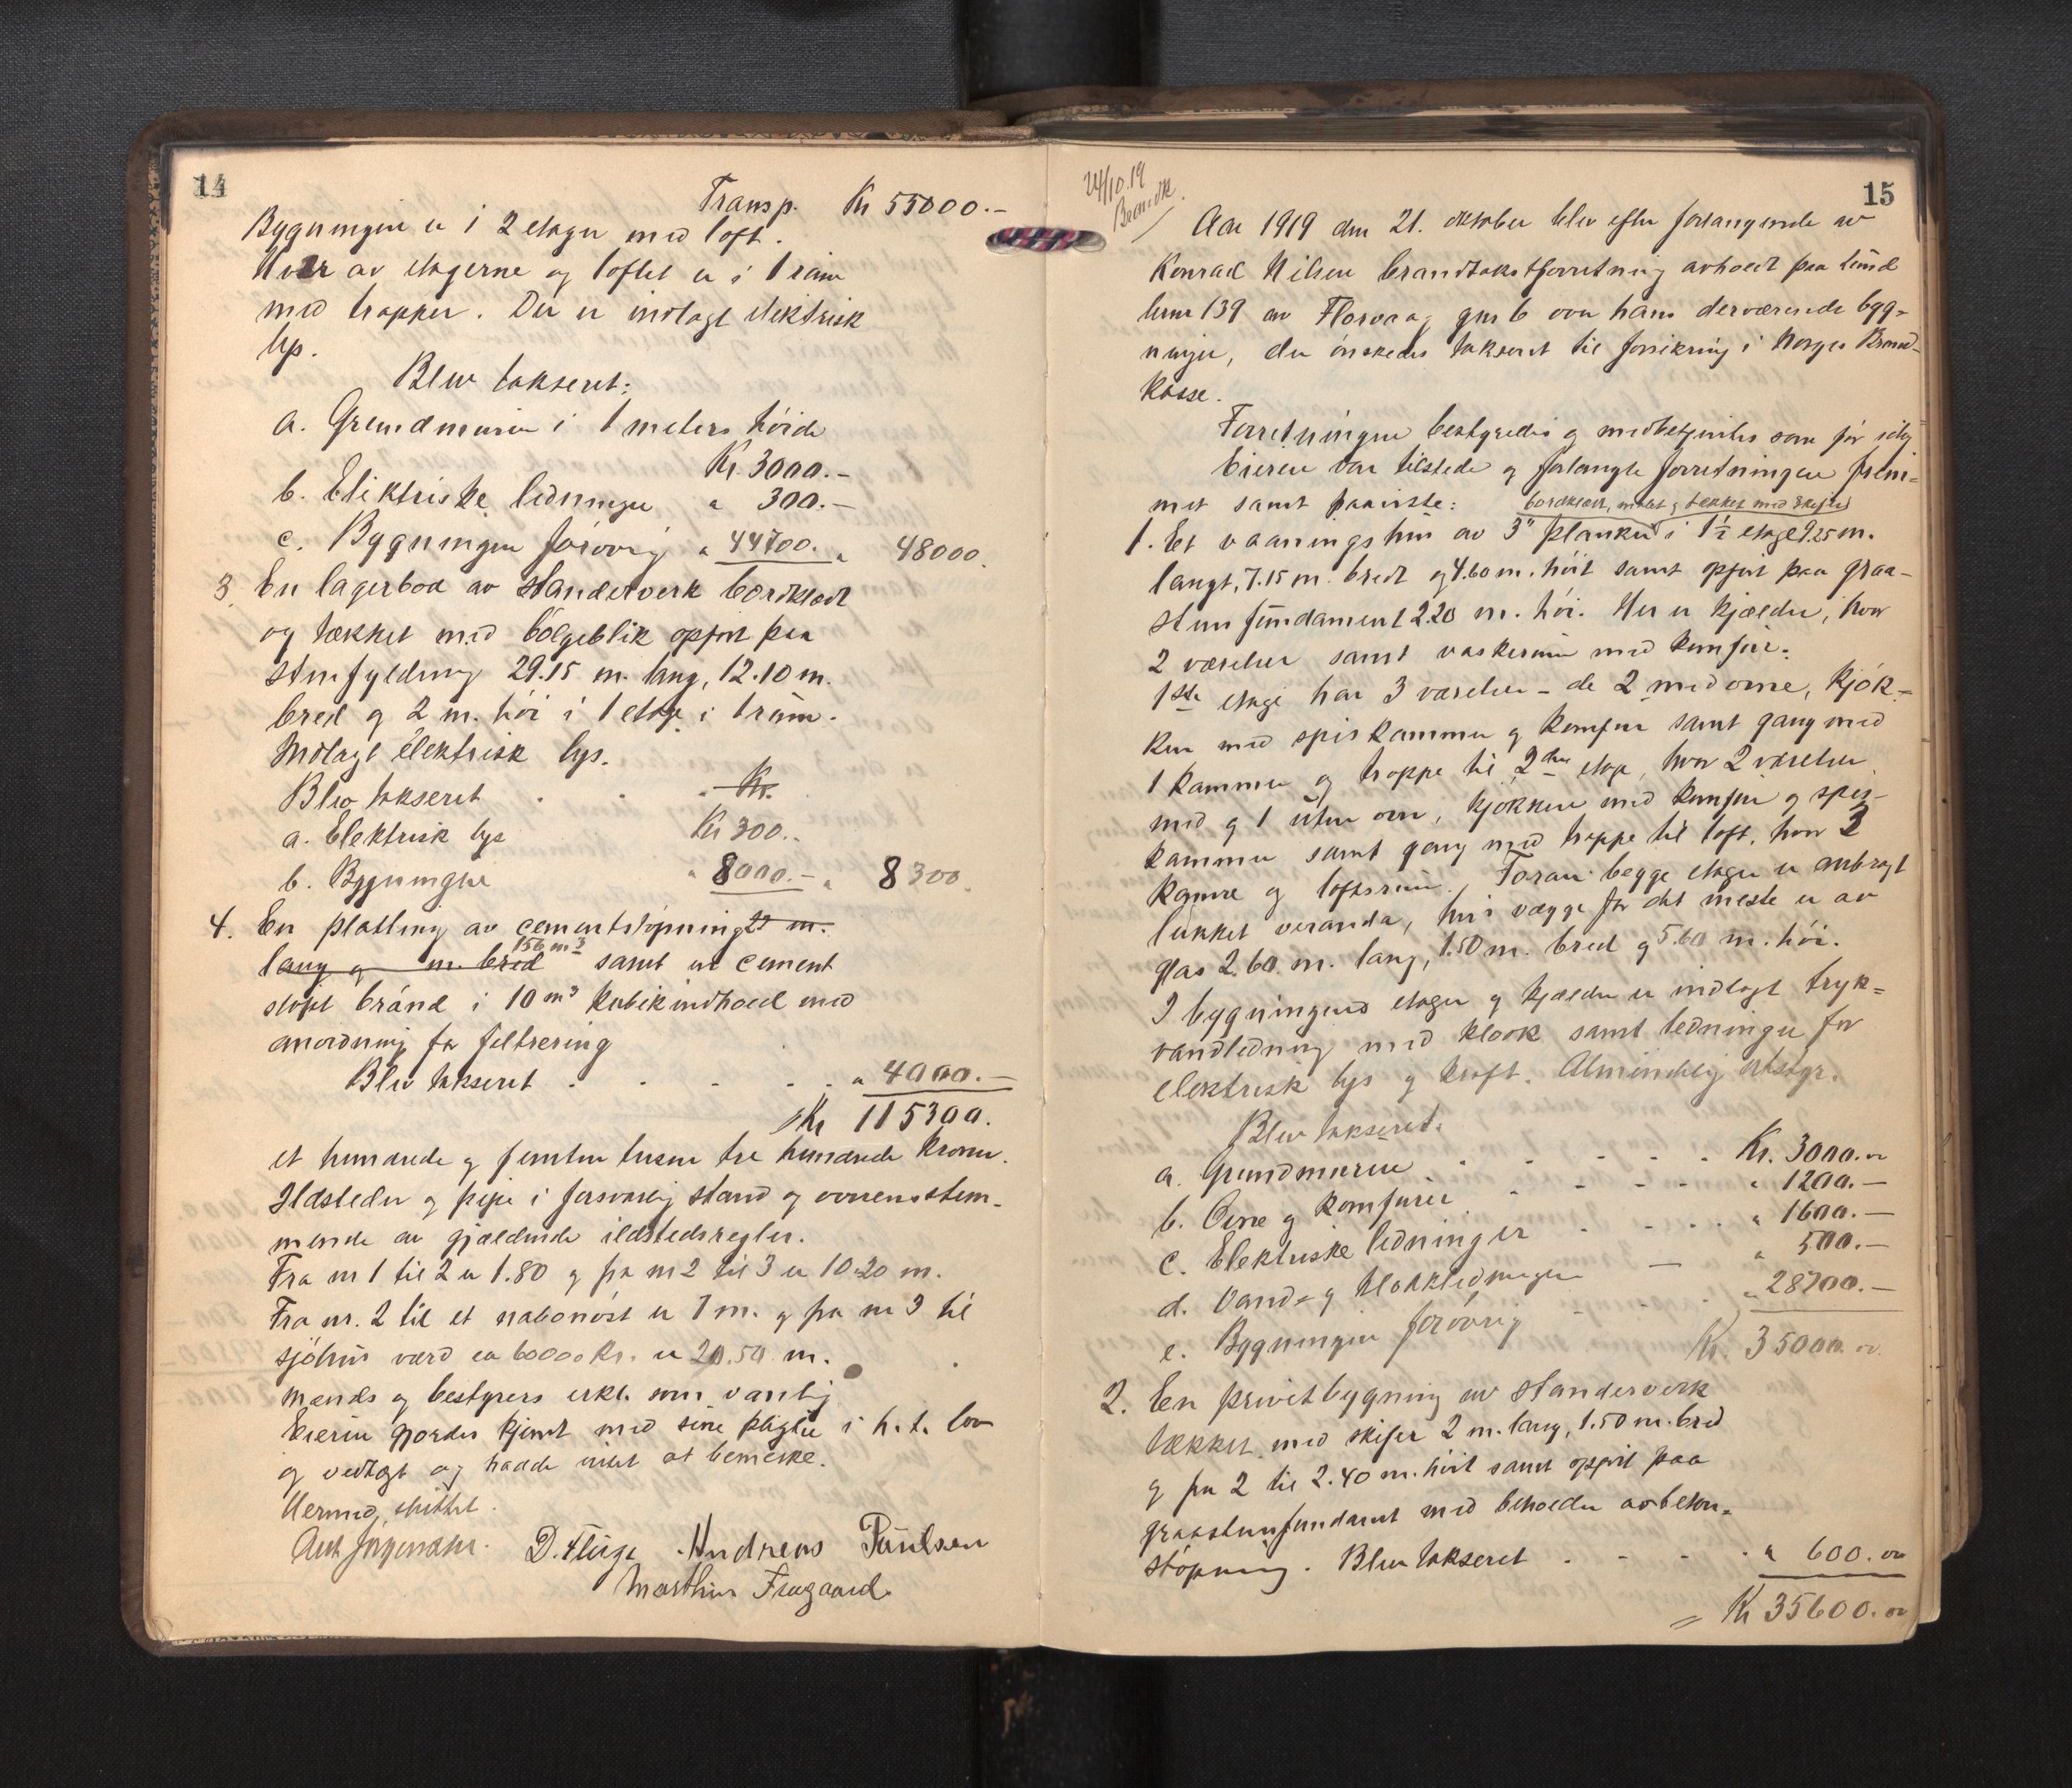 14
Transp. Kr 55000.-
Bygningen er i 2 etager med loft.
Hver av etagerne og loftet er i 1 rum
med trapper. Der er indlagt elektrisk
lys.
Blev takseret:
a. Grundmuren i 1 meters høide
Kr. 3000.-
b. Elektriske ledninger " 300.-
c. Bygningen forøvrig " 44700. " 48000.
3. En lagerbod av standerverk bordklædt
og tækket med bølgeblik opført paa
stenfyldning 29.15 m. lang, 12.10 m.
bred og 2 m. høi i 1 etage i 1 rum.
Indlagt elektrisk lys.
Blev takseret . . . Kr.
a. Elektrisk lys Kr 300.-
b. Bygningen " 8000.- " 8300.
4. En platting av cementstøpning 25 m.
lang og m. bred 156 m3 samt en cement
støpt brønd i 10 m3 kubikindhold med
anordning for filtrering
Blev takseret . . . . . " 4000.-
Kr 115300.
et hundrede og femten tusen tre hundrede kroner.
Ildsteder og pipe i forsvarlig stand og overensstem-
mende av gjældende ildstedsregler.
Fra nr 1 til 2 er 1.80 og fra nr 2 til 3 er 10.20 m.
Fra nr. 2 til et nabonøst er 7 m. og fra nr 3 til
sjøhus værd ca 60000 Kr. er 20.50 m.
Mænds og bestyrers erkl. som vanlig
Eieren gjordes kjent med sine pligter i h. t. lov
og vedtægt og hadde intet at bemerke.
Hermed sluttet.
D. Fluge Andreas Paulsen
Marthin Fragaard
24/10.19
15
Aar 1919 den 21. oktober blev efter forlangende av
Konrad Nilsen brandtakstforretning avholdt paa lund
brnr 139 av Florvaag gnr 6 over hans derværende byg-
ninger, der ønskedes takseret til forsikring i Norges Brand-
kasse.
Forretningen bestyredes og medbetjentes som før sidst
Eieren var tilstede og forlangte forretningen frem-
met samt paaviste: bordklædt, malet og tækket med skifer
1. Et vaaningshus av 3" planker i 1½ etage 9.25 m.
langt, 7.15 m. bredt og 4.60 m. høit samt opført paa graa-
stensfundament 2.20 m. høi. Her er kjælder, hvor
2 værelser samt vaskerum med komfur.
1ste etage har 3 værelser - de 2 med ovne, kjøk-
ken med spiskammer og komfur samt gang med
1 kammer og trappe til 2den etage, hvor 2 værelser
med og 1 uten ovn, kjøkken med komfur og spis-
kammer samt gang med trappe til loft, hvor 3
kamre og loftsrum. Foran begge etager er anbragt
lukket veranda, hvis vægge for det meste er av
glas 2.60 m. lang, 1.50 m. bred og 5.60 m. høi.
I bygningens etager og kjælder er indlagt tryk-
vandledning med kloak samt ledninger for
elektrisk lys og kraft. Almindelig utstyr.
Blev takseret:
a. Grundmuren . . . . . Kr. 3000.00
b. Ovne og komfurer . . . . " 1200.-
c. Elektriske ledninger . . . . " 1600.-
d. Vand- og kloakledninger - " 500.-
e. Bygningen forøvrig . . . " 28700.-
Kr. 35000.00
2. En privetbygning av standerverk
tækket med skifer 2 m. lang, 1.50 m. bred
og fra 2 til 2.40 m. høit samt opført paa
graastensfundamt med beholder av beton-
støpning. Blev takseret . . . . " 600.00
= Kr 35600.00